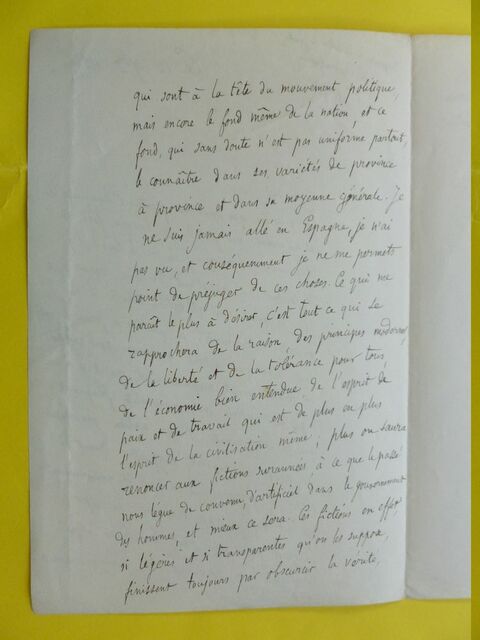 qui sont à la tête du mouvement politique,
mais encore le fond même de la nation, et ce
fond, qui sans doute n'est pas uniforme partout,
le connaître dans ses variétés de province
à province et dans sa moyenne générale. Je
ne suis jamais allé en Espagne, je n'ai
pas vu, et conséquemment je ne me permets
point de préjuger de ces choses. Ce qui me
paraît le plus à désirer, c'est tout ce qui se
rapprochera de la raison, des principes modernes,
de la liberté et de la tolérance pour tous,
de l'économie bien entendue, de l'esprit de
paix et de travail qui est de plus en plus
l'esprit de la civilisation même; plus on saura
renoncer aux fictions surannées à ce que le passé
nous lègue de convenu, d'artificiel dans le gouvernement
des hommes, et mieux ce sera. Ces fictions en effet,
si légères et si transparentes qu'on les suppose,
finissent toujours par obscurcir la vérité,